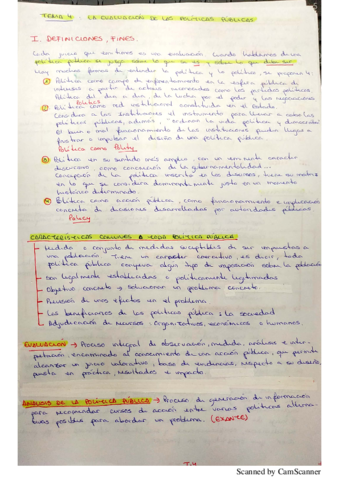 TEMA 4 LA EVALUACIÓN DE LAS POLÍTICAS PÚBLICAS
I. DEFINICIONES, FINES.
Cada juicio que emitimos es una evaluación. Cuando hablamos de una
política pública se juzga sobre lo que es y sobre lo que debe ser
Hay muchas formas de entender la política y lo político, se proponen 4:
Política como campo de enfrentamiento en la esfera pública de
intereses a partir de actores como los partidos políticos
Política del día a día, de la lucha por el poder y las negociaciones
Politics
Política como red institucional constituida en el Estado.
Considera a las instituciones el instrumento para llevar a cabo las
políticas públicas, además, ordenar la vida política y
El buen o mal funcionamiento de las instituciones pueden llegar a
frustrar o impulsar el diseño de una política pública.
Política como Polity
Política en su sentido más amplio, con un carácter
discursivo, como concreción de la gubernamentalidad.
Concepción de la política inscrita en los discursos, hacia su matriz
en la que se considera justo en un momento
histórico determinado.
Política como acción pública, como funcionamiento e implicación
concreta de decisiones desarrolladas por autoridades públicas
Policy
CARACTERÍSTICAS COMUNES A TODA POLÍTICA PÚBLICA
- Medida o conjunto de medidas susceptibles de ser impuestas a
una población. Tiene un carácter operativo es decir, toda
política pública conlleva algún tipo de imposición sobre la población
- Son legalmente establecidas o políticamente legitimadas
- Objetivo concreto → solucionar un problema concreto
- Previsión de unos efectos en el problema
- Los beneficiarios de las políticas públicas: la sociedad
- Adjudicación de recursos: Organizativos, económicos o humanos.
EVALUACIÓN → Proceso integral de observación, medida, análisis e inter-
pretación, encaminado al conocimiento de una acción pública, que permita
alcanzar un juicio valorativo, basado en evidencias, respecto a su diseño,
puesta en práctica, resultados e impacto.
ANÁLISIS DE LA POLÍTICA PÚBLICA → Proceso de generación de información
para recomendar cursos de acción entre varias políticas alterna-
tivas posibles para abordar un problema. (EXANTE)
T.4
Scanned by CamScanner